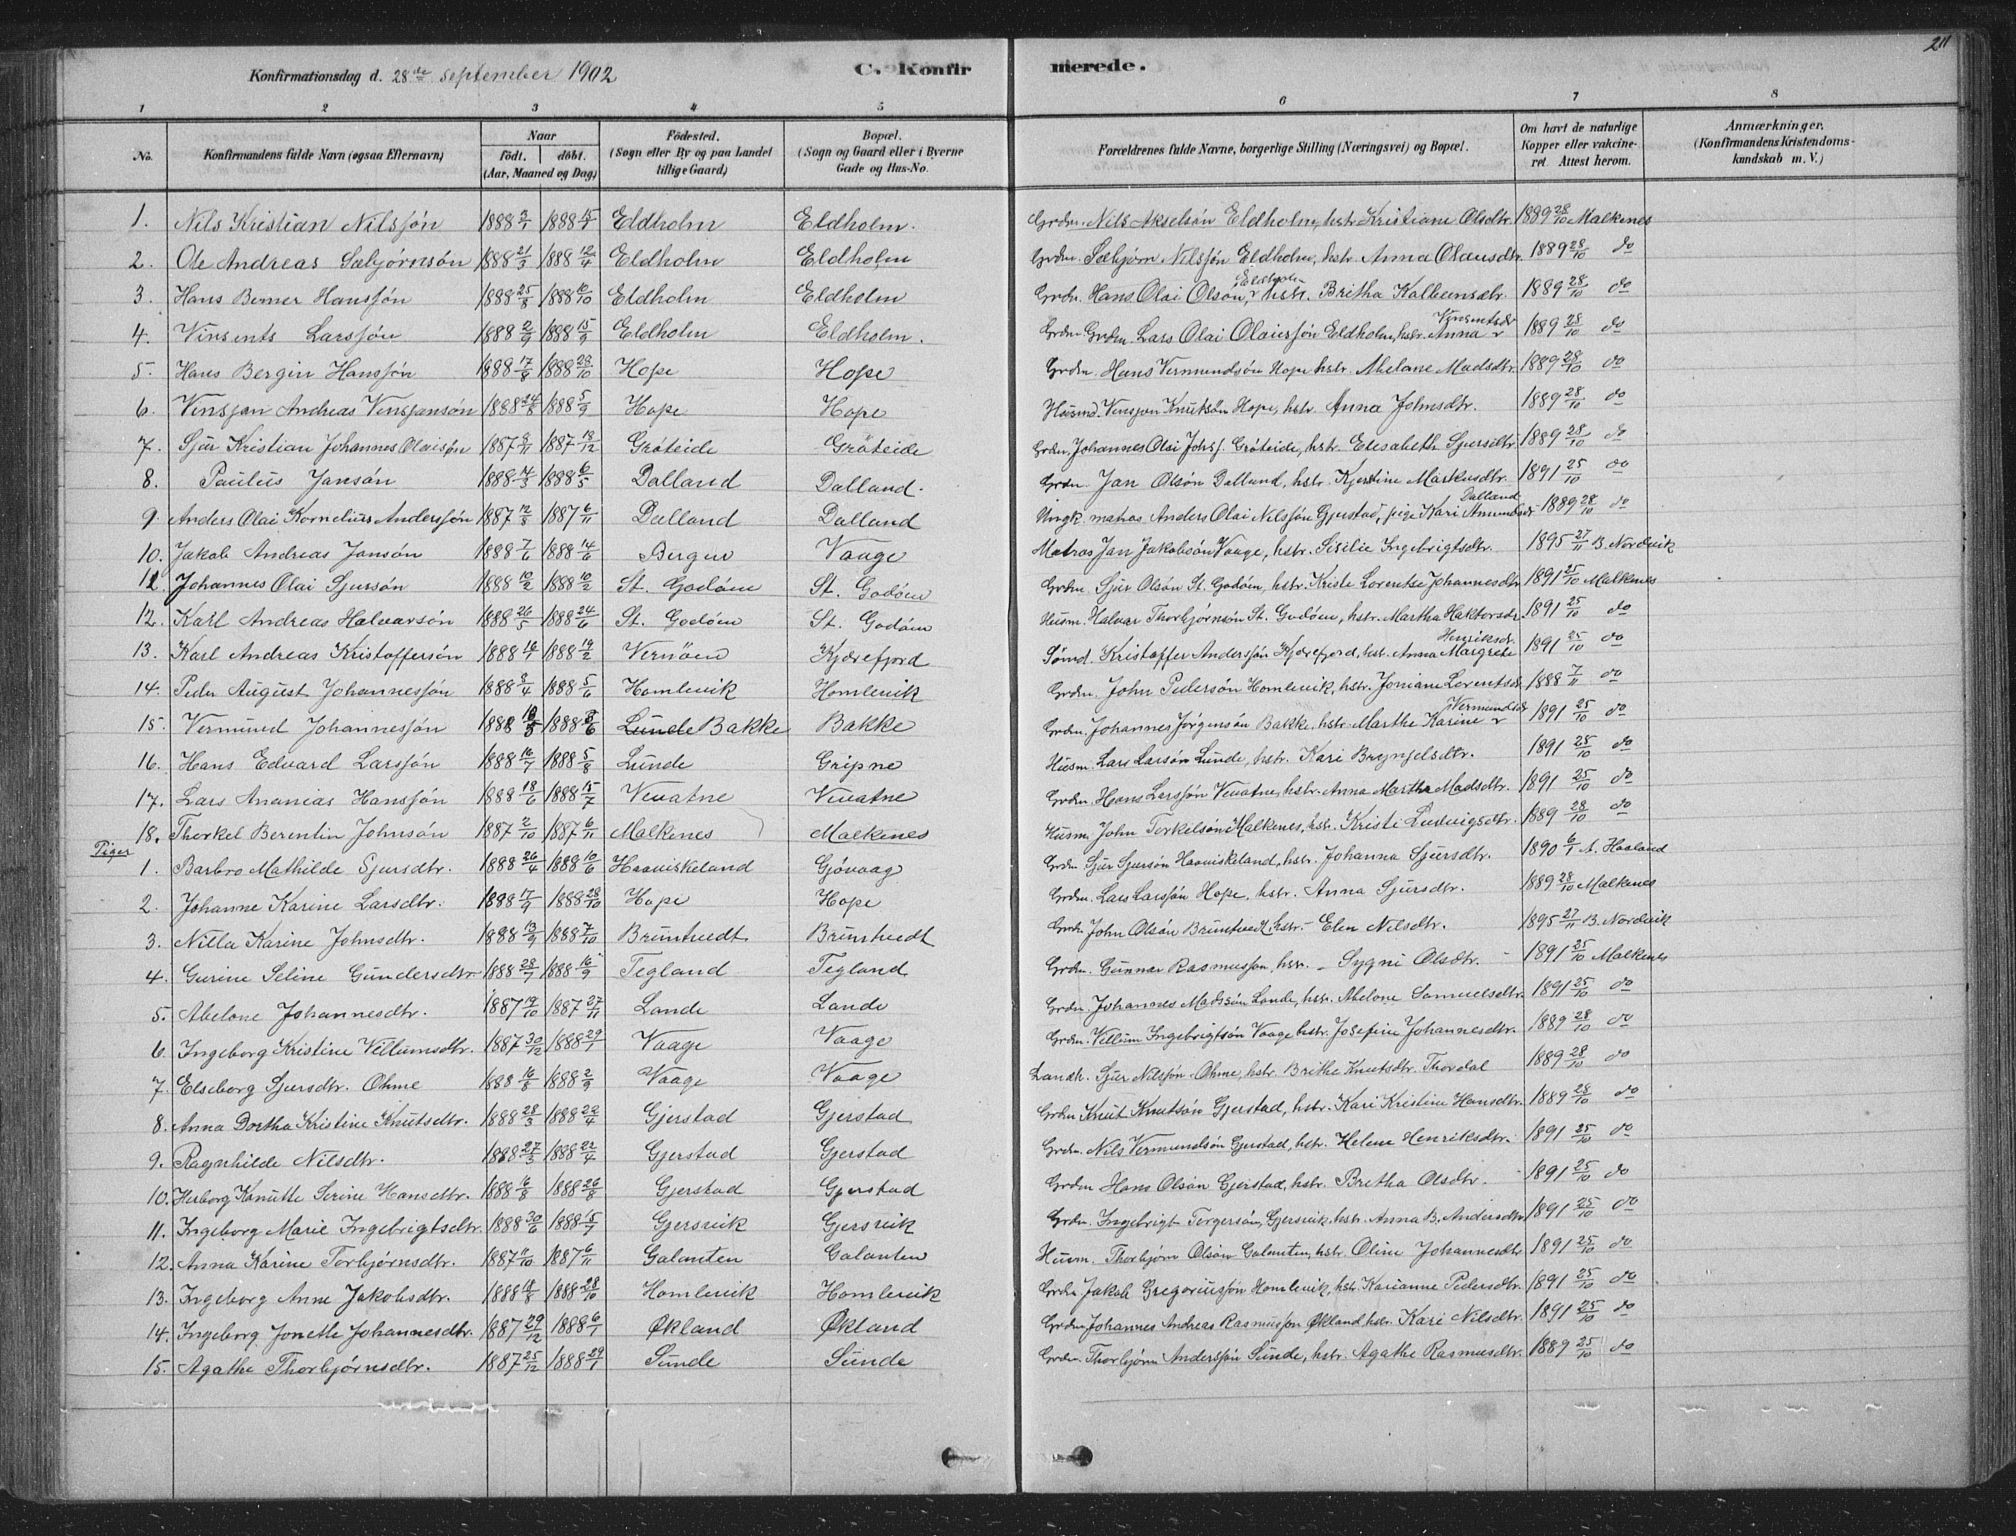 211
Konfirmationsdag d. 28de september 1902 C. Konfirmerede.
1 2 3 4 5 6 7 8
No. Konfirmandens fulde Navn (ogsaa Efternavn) Naar födt. döbt. (Aar, Maaned og Dag) Födested. (Sogn eller By og paa Landet tillige Gaard) Bopæl. (Sogn og Gaard eller i Byerne Gade og Hus-No. Forældrenes fulde Navne, borgerlige Stilling (Næringsvei) og Bopæl. Om havt de naturlige Kopper eller vakcineret. Attest herom. Anmærkninger. (Konfirmandens Kristendomskundskab m. V.)
1. Nils Kristian Nilssön 1888 1888 Eldholm Eldholm. Grdm. Nils Akselsön Eldholm, hstr. Kristiane Olsdtr. 1889 28/10 Malkenes
2. Ole Andreas Sæbjörnsön 1888 21/3 1888 12/4 Eldholm Eldholm Grdm. Sæbjörn Nilssön Eldholm, hstr. Anna Olausdtr. 1889 28/10 do
3. Hans Berner Hanssön 1888 25/8 1888 10/10 Eldholm Eldholm Grdm. Hans Olai Olsön, Eldholm hstr. Britha Kolbeinsdtr. 1889 28/10 do
4. Vinsents Larssön 1888 2/9 1888 15/9 Eldholm Eldholm. Grdm. Grdm. Lars Olai Olaissön Eldholm, hstr. Anna Vinsentsdr 1889 28/10 do
5. Hans Bergin Hanssön 1888 17/8 1888 28/10 Hope Hope Grdm. Hans Vermundsön Hope hstr. Abelone Madsdtr. 1889 28/10 do
6. Vinsjan Andreas Vinsjansön 1888 24/8 1888 5/9 Hope Hope Husmd. Vinsjan Knutsön Hope, hstr. Anna Johnsdtr. 1889 28/10 do
7. Sjur Kristian Johannes Olaisön 1887 8/11 1887 18/12 Gröteide Gröteide Grdm. Johannes Olai Johss. Gröteide, hstr. Elisabeth Sjursdtr 1889 28/10 do
8. Paulus Jansön 1888 14/3 1888 6/5 Dalland Dalland. Grdm. Jan Olsön Dalland, hstr. Kjerstine Markusdtr. 1891 25/10 do
9. Anders Olai Kornelius Anderssön 1887 12/8 1887 6/11 Dalland Dalland Ungk. matros Anders Olai Nilssön Gjerstad, pige Kari Amundsdr Dalland 1889 28/10 do
10. Jakob Andreas Jansön 1888 7/6 1888 14/6 Berger Vaage Matros Jan Jakobsön Vaage, hstr. Sisilie Ingebrigtsdtr. 1895 27/11 B. Nordvik
11. Johannes Olai Sjursön 1888 10/2 1888 10/2 St. Godöen St. Godöen Grdm. Sjur Olsön St. Godöen, hstr. Kriste Lorentse Johannesdtr 1891 25/10 Malkenes
12. Karl Andreas Halvarsön 1888 26/5 1888 24/6 St. Godöen St. Godöen Husm. Halvar Thorbjörnsön St. Godöen, hstr. Martha Haktorsdr. 1891 25/10 do
13. Karl Andreas Kristoffersön 1888 16/1 1888 19/2 Vernöen Kjærefjord Sömd. Kristoffer Anderssön Kjærefjord, hst. Anna Margrete Henriksdr. 1891 25/10 do
14. Peder August Johannessön 1888 8/4 1888 5/6 Homlevik Homlevik Grdm. John Pedersön Homlevik, hstr. Joniane Lorentsdr 1888 7/11 do
15. Vermund Johannessön 1888 1888 Lunde Bakke Bakke Grdm. Johannes Jörgensön Bakke, hstr. Marthe Karine Vermundsdr 1891 25/10 do
16. Hans Edvard Larssön 1888 16/7 1888 5/8 Lunde Gripne Husm. Lars Larsön Lunde, hstr. Kari Brynjelsdtr. 1891 25/10 do
17. Lars Ananias Hanssön 1888 18/6 1888 15/7 Vevatne Vevatne Grdm. Hans Larssön Vevatne, hstr. Anna Martha Madsdtr. 1891 25/10 do
18. Thorkel Berentin Johnsön 1887 2/10 1887 6/11 Malkenes Malkenes Husm. John Torkelsön Malkenes, hstr. Kristi Ludvigsdtr. 1889 28/10 do
Piger
1. Barbro Mathilde Sjursdtr. 1888 26/4 1888 10/6 Haaviskeland Gjövaag Grdm. Sjur Sjursön Haaviskeland, hstr. Johanna Sjursdtr. 1890 6/1 A. Haaland
2. Johanne Karine Larsdtr. 1888 17/9 1888 28/10 Hope Hope Grdm. Lars Larssön Hope, hstr. Anna Sjursdtr. 1889 28/10 Malkenes
3. Nilla Karine Johnsdtr. 1888 13/9 1888 7/10 Bruntvedt Bruntvedt Grdm. John Olsön Bruntvedt, hstr. Elen Nilsdtr. 1895 27/11 B. Nordvik
4. Gurine Seline Gundersdtr 1888 28/7 1888 16/9 Tegland Tegland Grdm. Gunnar Rasmusson, hstr. Sygni Olsdtr. 1891 25/10 Malkenes
5. Abelone Johannesdtr. 1887 19/10 1887 27/11 Lande Lande Grdm. Johannes Madssön Lande, hstr. Abelone Samuelsdtr. 1891 25/10 do
6. Ingeborg Kristine Villumsdtr. 1887 30/12 1888 29/1 Vaage Vaage Grdm. Villum Ingebrigtsön Vaage hstr. Josefine Johannesdtr. 1889 28/10 do
7. Elseborg Sjursdtr. Ohme 1888 16/8 1888 2/9 Vaage Vaage Landh. Sjur Nilssön Ohme, hstr. Brithe Knutsdtr. Thordal 1889 28/10 do
8. Anna Dortha Kristine Knutsdtr. 1888 28/3 1888 22/4 Gjerstad Gjerstad Grdm. Knut Knutsön Gjerstad, hstr. Kari Kristine Hansdtr. 1889 28/10 do
9. Ragnhilde Nilsdtr. 1888 27/3 1888 22/4 Gjerstad Gjerstad Grdm. Nils Vermundsön Gjerstad, hstr. Helene Henriksdtr. 1891 25/10 do
10. Herborg Kanutte Serine Hansdtr. 1888 6/8 1888 26/8 Gjerstad Gjerstad Grdm. Hans Olsön Gjerstad, hstr. Bretha Olsdtr. 1891 25/10 do
11. Ingeborg Marie Ingebrigtsdtr. 1888 30/6 1888 5/7 Gjersvik Gjersvik Grdm. Ingebrigt Torgersön, Gjersvik, hstr. Anna B. Andersdtr 1891 25/10 do
12. Anna Karine Torbjörnsdtr. 1887 11/10 1887 6/11 Galanten Galanten Husm. Thorbjörn Olsön Galanten, hstr. Oline Johannesdtr 1891 25/10 do
13. Ingeborg Anne Jakobsdtr. 1888 18/8 1888 28/10 Homlevik Homlevik Grdm. Jakob Gregoriussön Homlevik, hstr. Karianne Pedersdtr. 1891 25/10 do
14. Ingeborg Jonette Johannesdtr. 1887 29/12 1888 6/1 Økland Økland Grdm. Johannes Andreas Rasmusson Økland hstr. Kari Nilsdtr. 1891 25/10 do
15. Agathe Thorbjörnsdtr. 1887 25/12 1888 29/1 Sunde Sunde Grdm. Thorbjörn Anderssön Sunde, hstr. Agathe Rasmusdtr. 1889 25/10 do